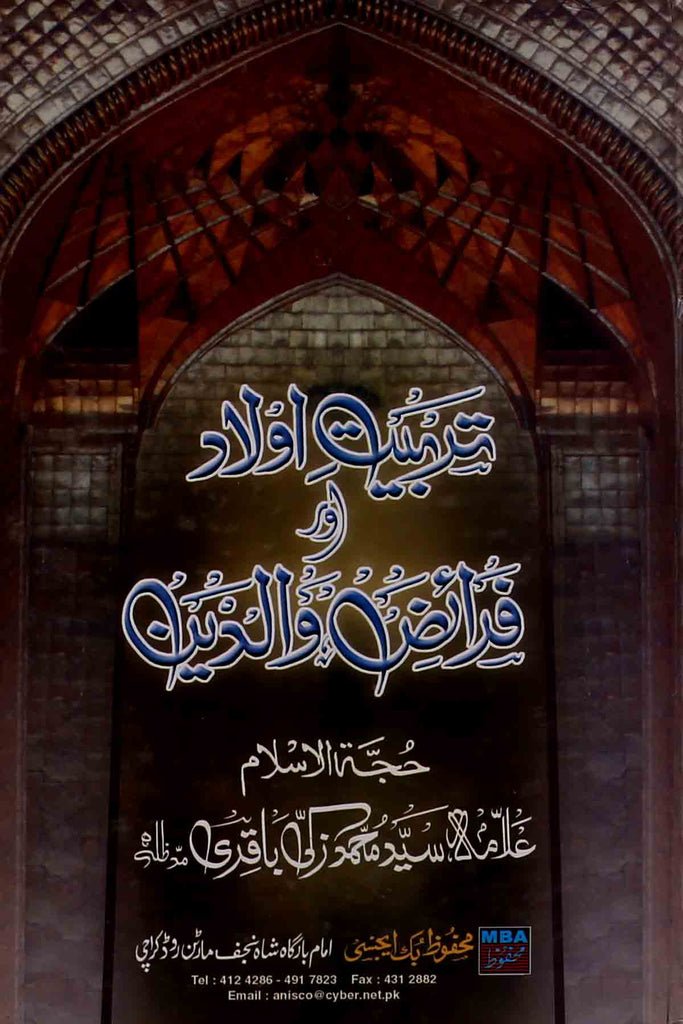 تربیتِ اولاد
اور
فرائضِ والدین
حُجّۃ الاسلام
علّامہ سیّد محمد زکی باقری مدّظلہٗ
MBA
محفوظ
محفوظ بک ایجنسی امام بارگاہ شاہ نجف مارٹن روڈ کراچی
Tel : 412 4286 - 491 7823 Fax : 431 2882
Email : anisco@cyber.net.pk